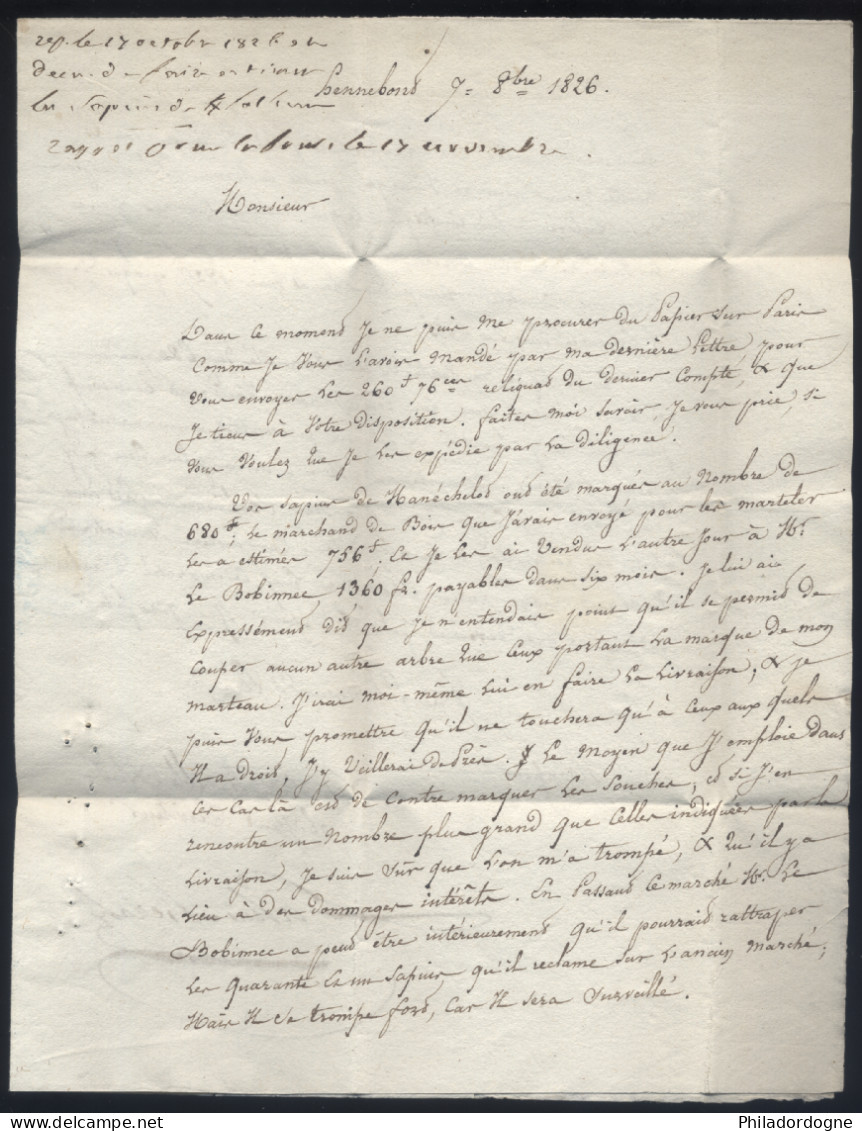 rep. le 17 octobre 1826
les sapins de
hennebond 7= 8bre 1826.
le 17 novembre.
Monsieur
Dans ce momend Je ne puis me procurer du Papier sur Paris
Comme Je Vous L'avois mandé par ma dernière Lettre, pour
Vous envoyer Les 260 t 76 ces reliquad du dernier Compte, & que
Je tiens à Votre Disposition. faites moi savoir, Je vous prie, si
Vous Voulez que Je Les expédie par La diligence.
Vos sapins de Hanéchelod ond été marqués au Nombre de
680 t; Le marchand de Bois que J'avais envoyé pour les marteler
Les a estimés 756 t, Et Je Les ai Vendus L'autre Jour à Mr.
Le Bobinnec 1360 fr. payables dans six mois. Je lui ai
Expressémend did que Je n'entendais point qu'il se permid de
Couper aucun autre arbre que Ceux portant La marque de mon
marteau. J'irai moi-même Lui en faire La Livraison, & je
puis Vous promettre qu'il ne touchera qu'à Ceux aux quels
Il a droid, J'y Veillerai de Près. Le Moyen que J'emploie dans
Ces Cas Là esd de Contre marquer Les Souches, ed si J'en
rencontre un Nombre plus grand que Celles indiquées par la
Livraison, Je suis sûr que L'on m'a trompé, & qu'il y a
Lieu à des dommages intérêts. En Passand Ce marché Mr. Le
Bobinnec a peud être intérieuremend qu'il pourraid rattraper
Les Quarante Et un Sapins, qu'il réclame sur L'ancien Marché;
Mais Il Se trompe ford, Car Il Sera Surveillé.
www.delcampe.net
Philadordogne